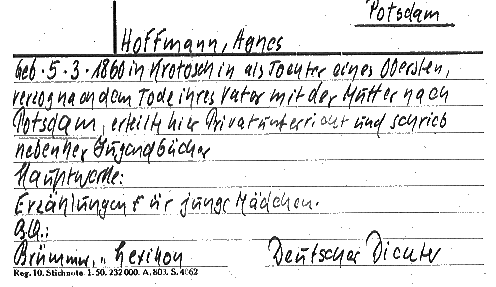 Potsdam
Hoffmann, Agnes
geb. 5.3.1860 in Krotoschin als Tochter eines Obersten,
verzog nach dem Tode ihres Vater mit der Mutter nach
Potsdam, erteilt hier Privatunterricht und schrieb
nebenher Jugendbücher
Hauptwerke:
Erzählungen für junge Mädchen.
Brümmer, Lexikon Deutscher Dichter
Reg. 10. Stichnote. 1. 50. 232 000. A. 803. S. 4062